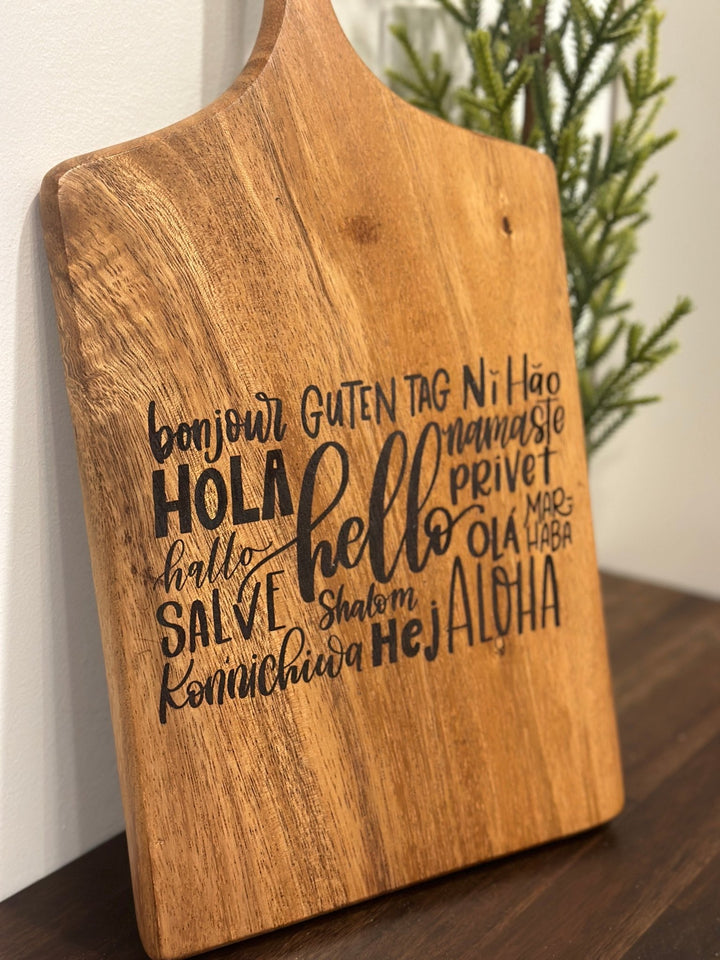 bonjour GUTEN TAG Nǐ Hǎo
HOLA hello namaste
PRIVET
hallo OLÁ MAR-
HABA
SALVE Shalom Hej ALOHA
Konnichiwa